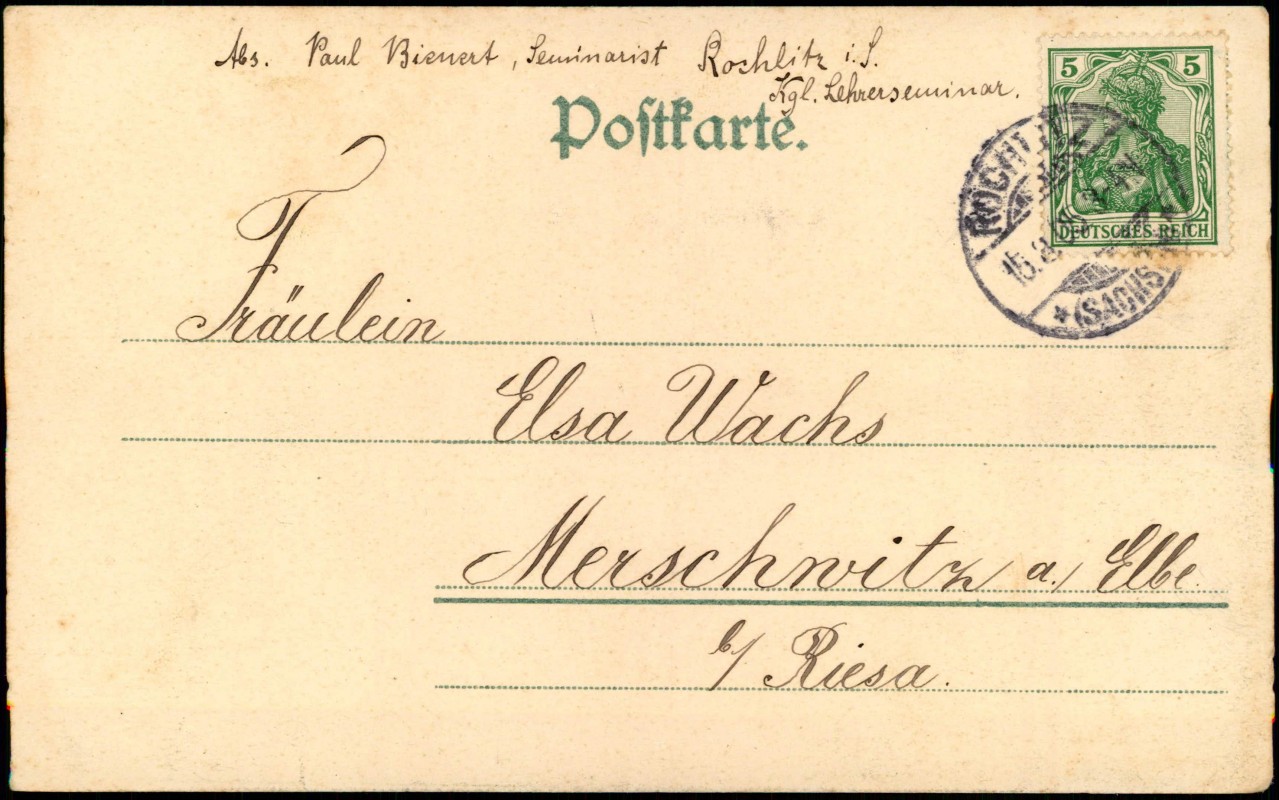 Abs. Paul Bienert, Seminarist Rochlitz i. S.
Kgl. Lehrerseminar.
Postkarte.
5 5
DEUTSCHES REICH
ROCHLITZ
* (SACHS
Fräulein
Elsa Wachs
Merschwitz a./ Elbe.
b/ Riesa.